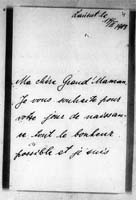 Ma chère Grand'Maman
Je vous souhaite pour
votre jour de naissan-
ce tout le bonheur
possible et je suis